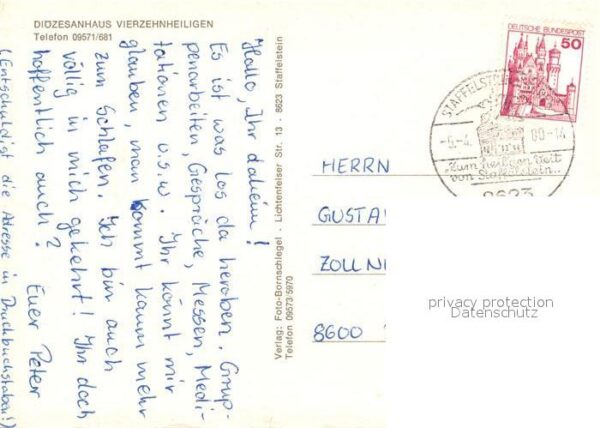 DIÖZESANHAUS VIERZEHNHEILIGEN
Telefon 09571/681
Hallo, Ihr daheim!
Es ist was los da heroben. Grup-
penarbeiten, Gespräche, Messen, Medi-
tationen u.s.w. Ihr könnt mir
glauben, man kommt kaum mehr
zum Schlafen. Ich bin auch
völlig in mich gekehrt! Ihr doch
hoffentlich auch? Euer Peter
(Entschuldigt die Adresse in Druckbuchstaben!)
Verlag: Foto-Bornschlegel · Lichtenfelser Str. 13 · 8623 Staffelstein
Telefon 09573/5970
DEUTSCHE BUNDESPOST
50
STAFFELST
-6.-4. 80-14
"Zum heiligen Veit
von Staffelstein..."
8623
HERRN
GUSTA
ZOLLN
8600
privacy protection
Datenschutz